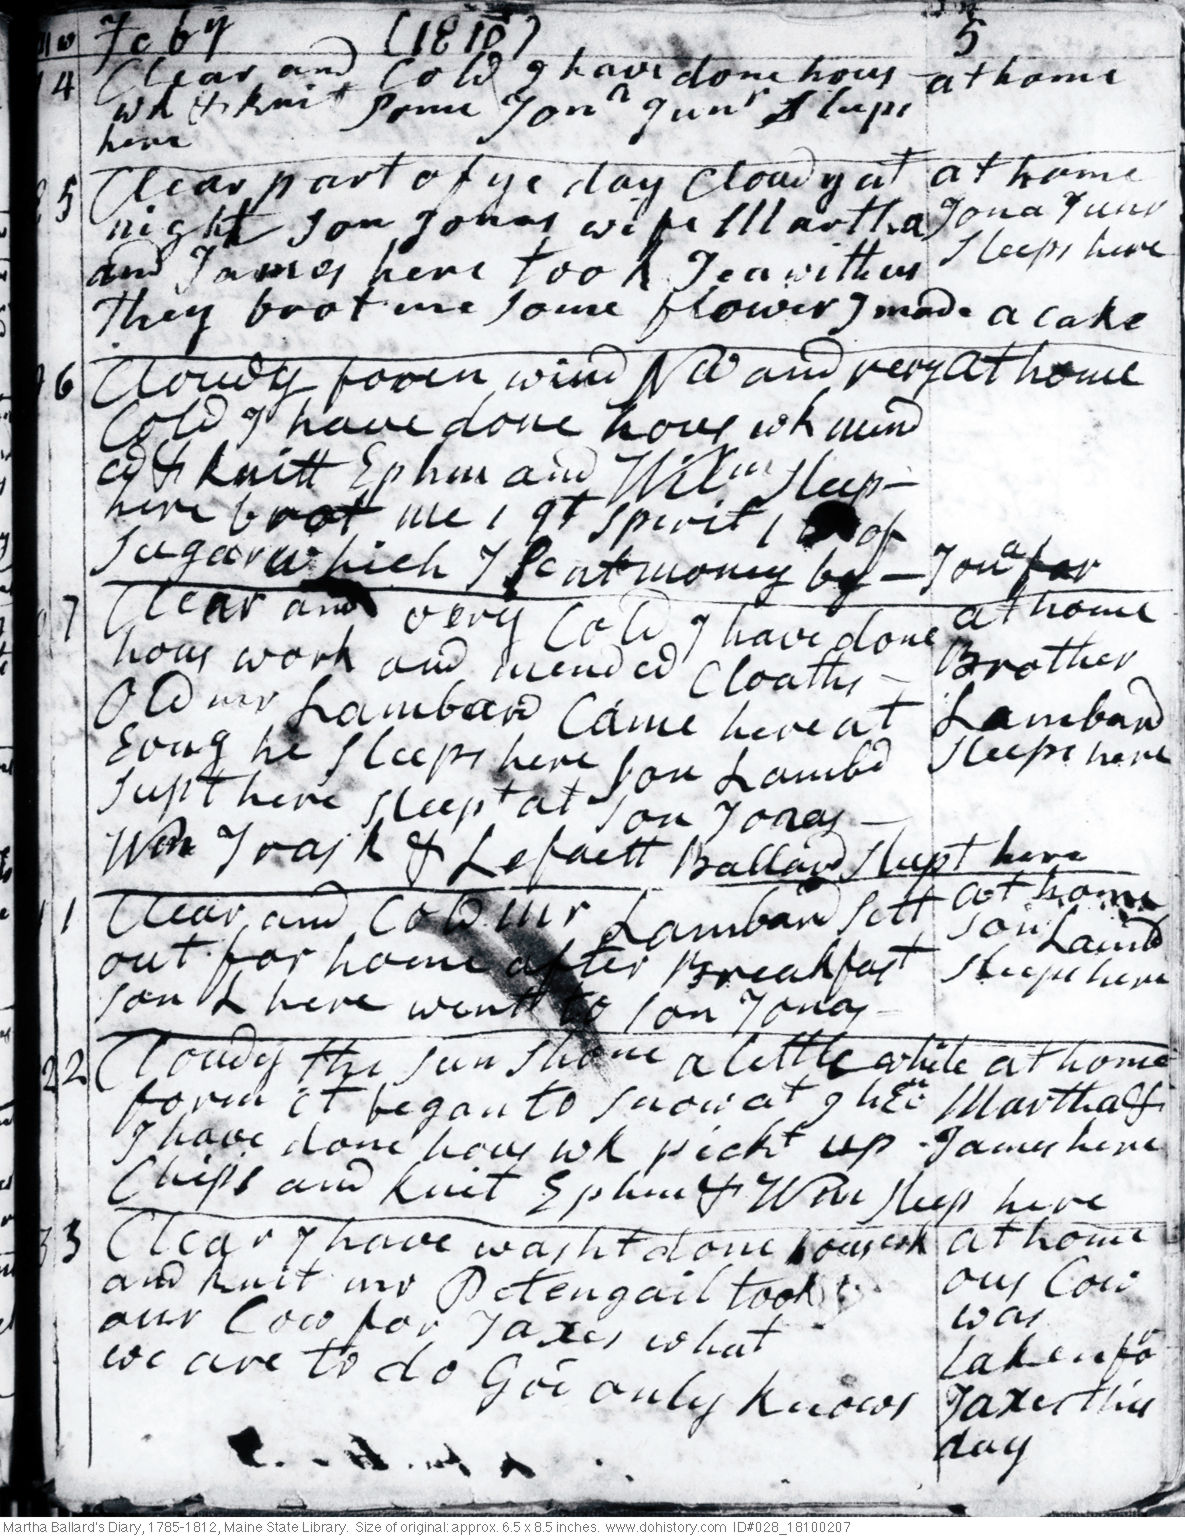 Feby (1810) 5
4 Clear and Cold I have done hous at home
wk & knit Some Jona Junr Sleeps
here
5 Clear part of ye day Cloudy at at home
night Son Jonas wife Martha Jona Junr
and James here took Tea with us Sleeps here
They brot me some flower I made a cake
6 Cloudy foren wind NW and very at home
Cold I have done hous wk mend
ed & knitt Ephm and Willm Sleep
here brot me 1 qt spirit 1 of
Sugar which I Sent money by – Jona for
7 Clear and very Cold I have done at home
hous work and mended Cloaths – Brother
Old mr Lambard Came here at Lambard
Evng he Sleeps here Son Lambd Sleeps here
Supt here Sleept at Son Jonas –
Wm Trask & Lefaett Ballard Slept here
1 Clear and Cold mr Lambard Sett at home
out for home after Breakfast Son Lambd
Son L here went to Son Jonas – Sleeps here
2 2 Cloudy the sun Shone a little while at home
forin it began to Snow at 9 h Evn Martha &
I have done hous wk pickt up James here
Chips and knit Ephm & Wm Sleep here
3 3 Clear I have washt done hous wk at home
and knit mr Petengail took our Cow
our Cow for Taxes what was
we are to do God only knows taken for
Taxes this
day
Martha Ballard's Diary, 1785-1812, Maine State Library. Size of original: approx. 6.5 x 8.5 inches. www.dohistory.com ID#028_18100207